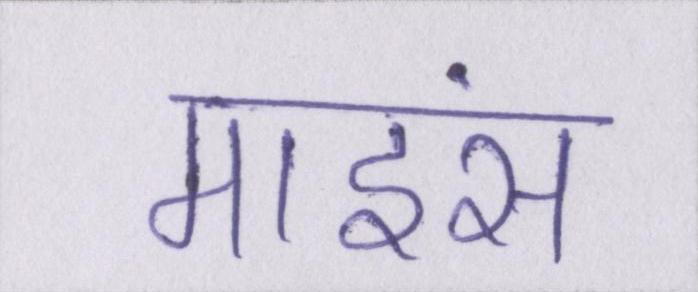 माइंस